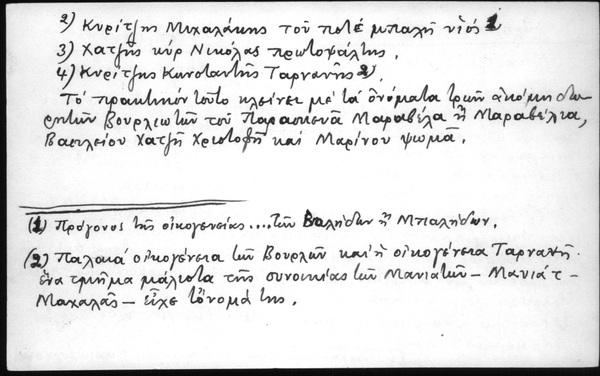 2) Κυρίτζης Μιχαλάκης τοῦ ποτέ μπαλῆ υἱός 1
3) Χατζῆς κύρ Νικόλας πρωτοψάλτης.
4) Κυρίτζης Κωνσταντῆς Ταρνανῆς 2).
Τό πρακτικόν τοῦτο κλείνει μέ τά ὀνόματα τριῶν ἀκόμη
Βουρλιωτῶν τοῦ Παρασκευᾶ Μαραβέλα ἤ Μαραβέλια,
Βασιλείου Χατζῆ Χριστοφῆ καί Μαρίνου ψωμᾶ.
(1) Πρόγονος τῆς οἰκογενείας .... τῶν Βαλήδων ἤ Μπαλήδων.
(2) Παλαιά οἰκογένεια τῶν Βουρλῶν καί ἡ οἰκογένεια Ταρνανῆ.
ἕνα τμῆμα μάλιστα τῆς συνοικίας τῶν Μανιατῶν – Μανιάτ –
Μαχαλᾶς – εἶχε τὄνομά της.